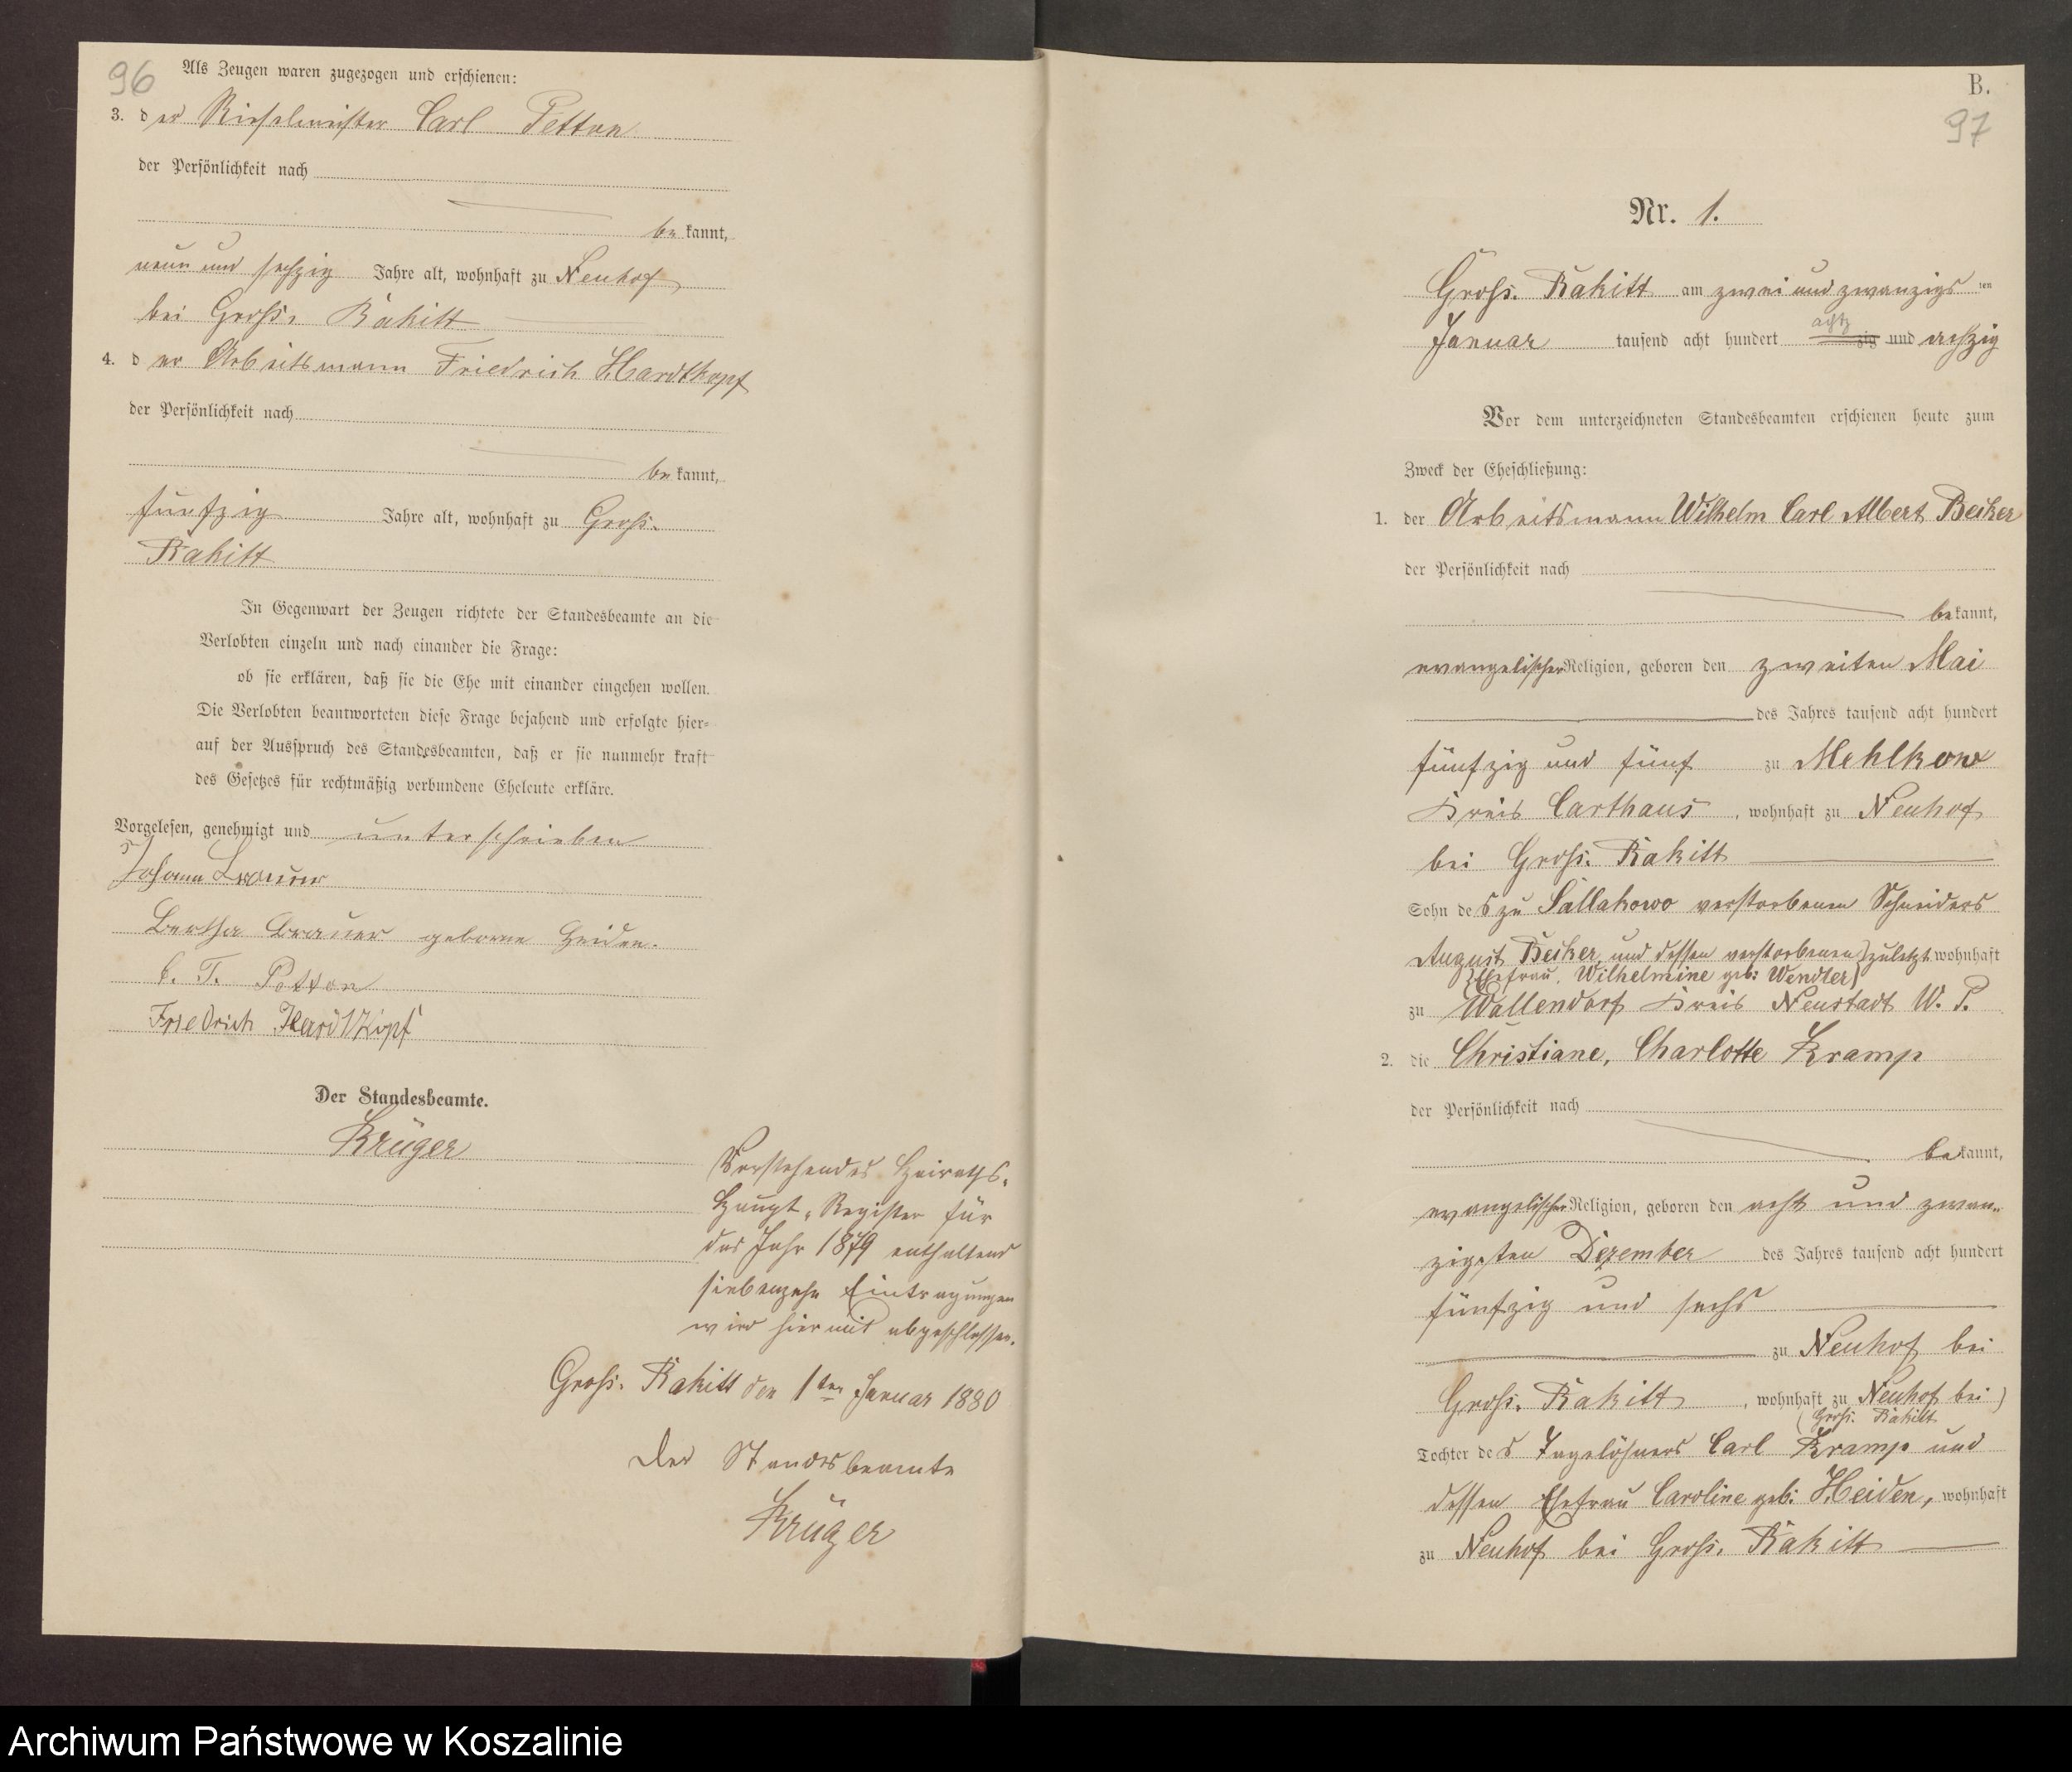 96
Als Zeugen waren zugezogen und erschienen:
3. der Rieselmeister Carl Petton
der Persönlichkeit nach
bekannt,
neun und sechzig Jahre alt, wohnhaft zu Neuhof
bei Groß. Rakitt
4. der Arbeitsmann Friedrich Hardtkopf
der Persönlichkeit nach
bekannt,
fünfzig Jahre alt, wohnhaft zu Groß.
Rakitt
In Gegenwart der Zeugen richtete der Standesbeamte an die
Verlobten einzeln und nach einander die Frage:
ob sie erklären, daß sie die Ehe mit einander eingehen wollen.
Die Verlobten beantworteten diese Frage bejahend und erfolgte hier-
auf der Ausspruch des Standesbeamten, daß er sie nunmehr kraft
des Gesetzes für rechtmäßig verbundene Eheleute erkläre.
Vorgelesen, genehmigt und unterschrieben
Johann Brauer
Bertha Brauer geborne Heiden.
C. T. Petton
Friedrich Hardtkopf
Der Standesbeamte.
Krüger
Vorstehendes Heiraths-
Haupt-Register für
das Jahr 1879 enthaltend
siebenzehn Eintragungen
wird hiermit abgeschlossen.
Groß. Rakitt den 1ten Januar 1880
Der Standesbeamte
Krüger
B.
97
Nr. 1.
Groß. Rakitt am zwei und zwanzigsten
Januar tausend acht hundert achtzig und achtzig
Vor dem unterzeichneten Standesbeamten erschienen heute zum
Zweck der Eheschließung:
1. der Arbeitsmann Wilhelm Carl Albert Becker
der Persönlichkeit nach
bekannt,
evangelischer Religion, geboren den zweiten Mai
des Jahres tausend acht hundert
fünfzig und fünf zu Mehlkow
Kreis Carthaus, wohnhaft zu Neuhof
bei Groß. Rakitt
Sohn des zu Sallakowo verstorbenen Schneiders
August Becker, und dessen verstorbenen zuletzt wohnhaft
Ehefrau, Wilhelmine geb: Wendler
zu Wallendorf Kreis Neustadt W. P.
2. die Christiane, Charlotte Kramp
der Persönlichkeit nach
bekannt,
evangelischer Religion, geboren den acht und zwan-
zigsten Dezember des Jahres tausend acht hundert
fünfzig und sechs
zu Neuhof bei
Groß. Rakitt, wohnhaft zu Neuhof bei
Groß. Rakitt
Tochter des Tagelöhners Carl Kramp und
dessen Ehefrau Caroline geb: Heiden, wohnhaft
zu Neuhof bei Groß. Rakitt
Archiwum Państwowe w Koszalinie